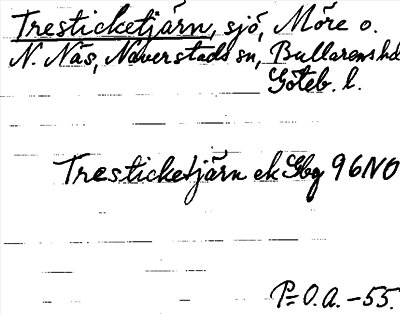 Tresticketjärn, sjö, Möre o.
N. Näs, Naverstads sn, Bullarens hd
Göteb. l.
Tresticketjärn ek Gbg 96NO
P=O.A. -55.